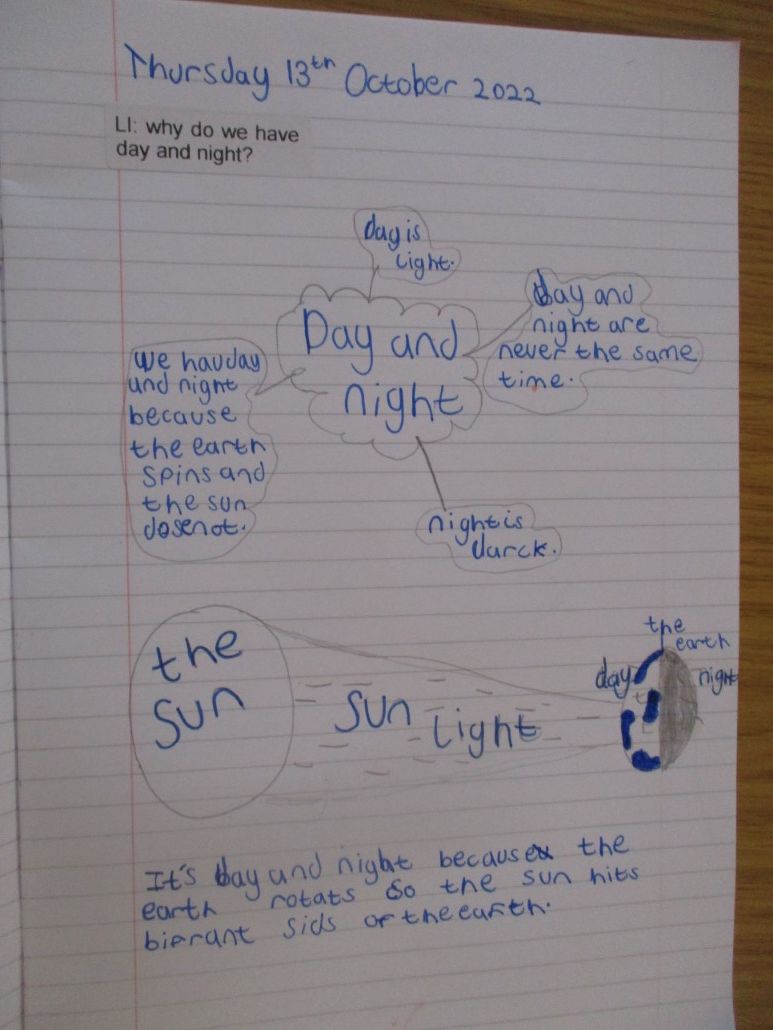 Thursday 13th October 2022
LI: why do we have
day and night?
day is
light.
Day and
night
day and
night are
never the same
time.
We hav day
and night
because
the earth
spins and
the sun
dose not.
night is
darck.
the
sun
sun light
the
earth
day
night
It's day and night because the
earth rotats so the sun hits
bifrant sids of the earth.